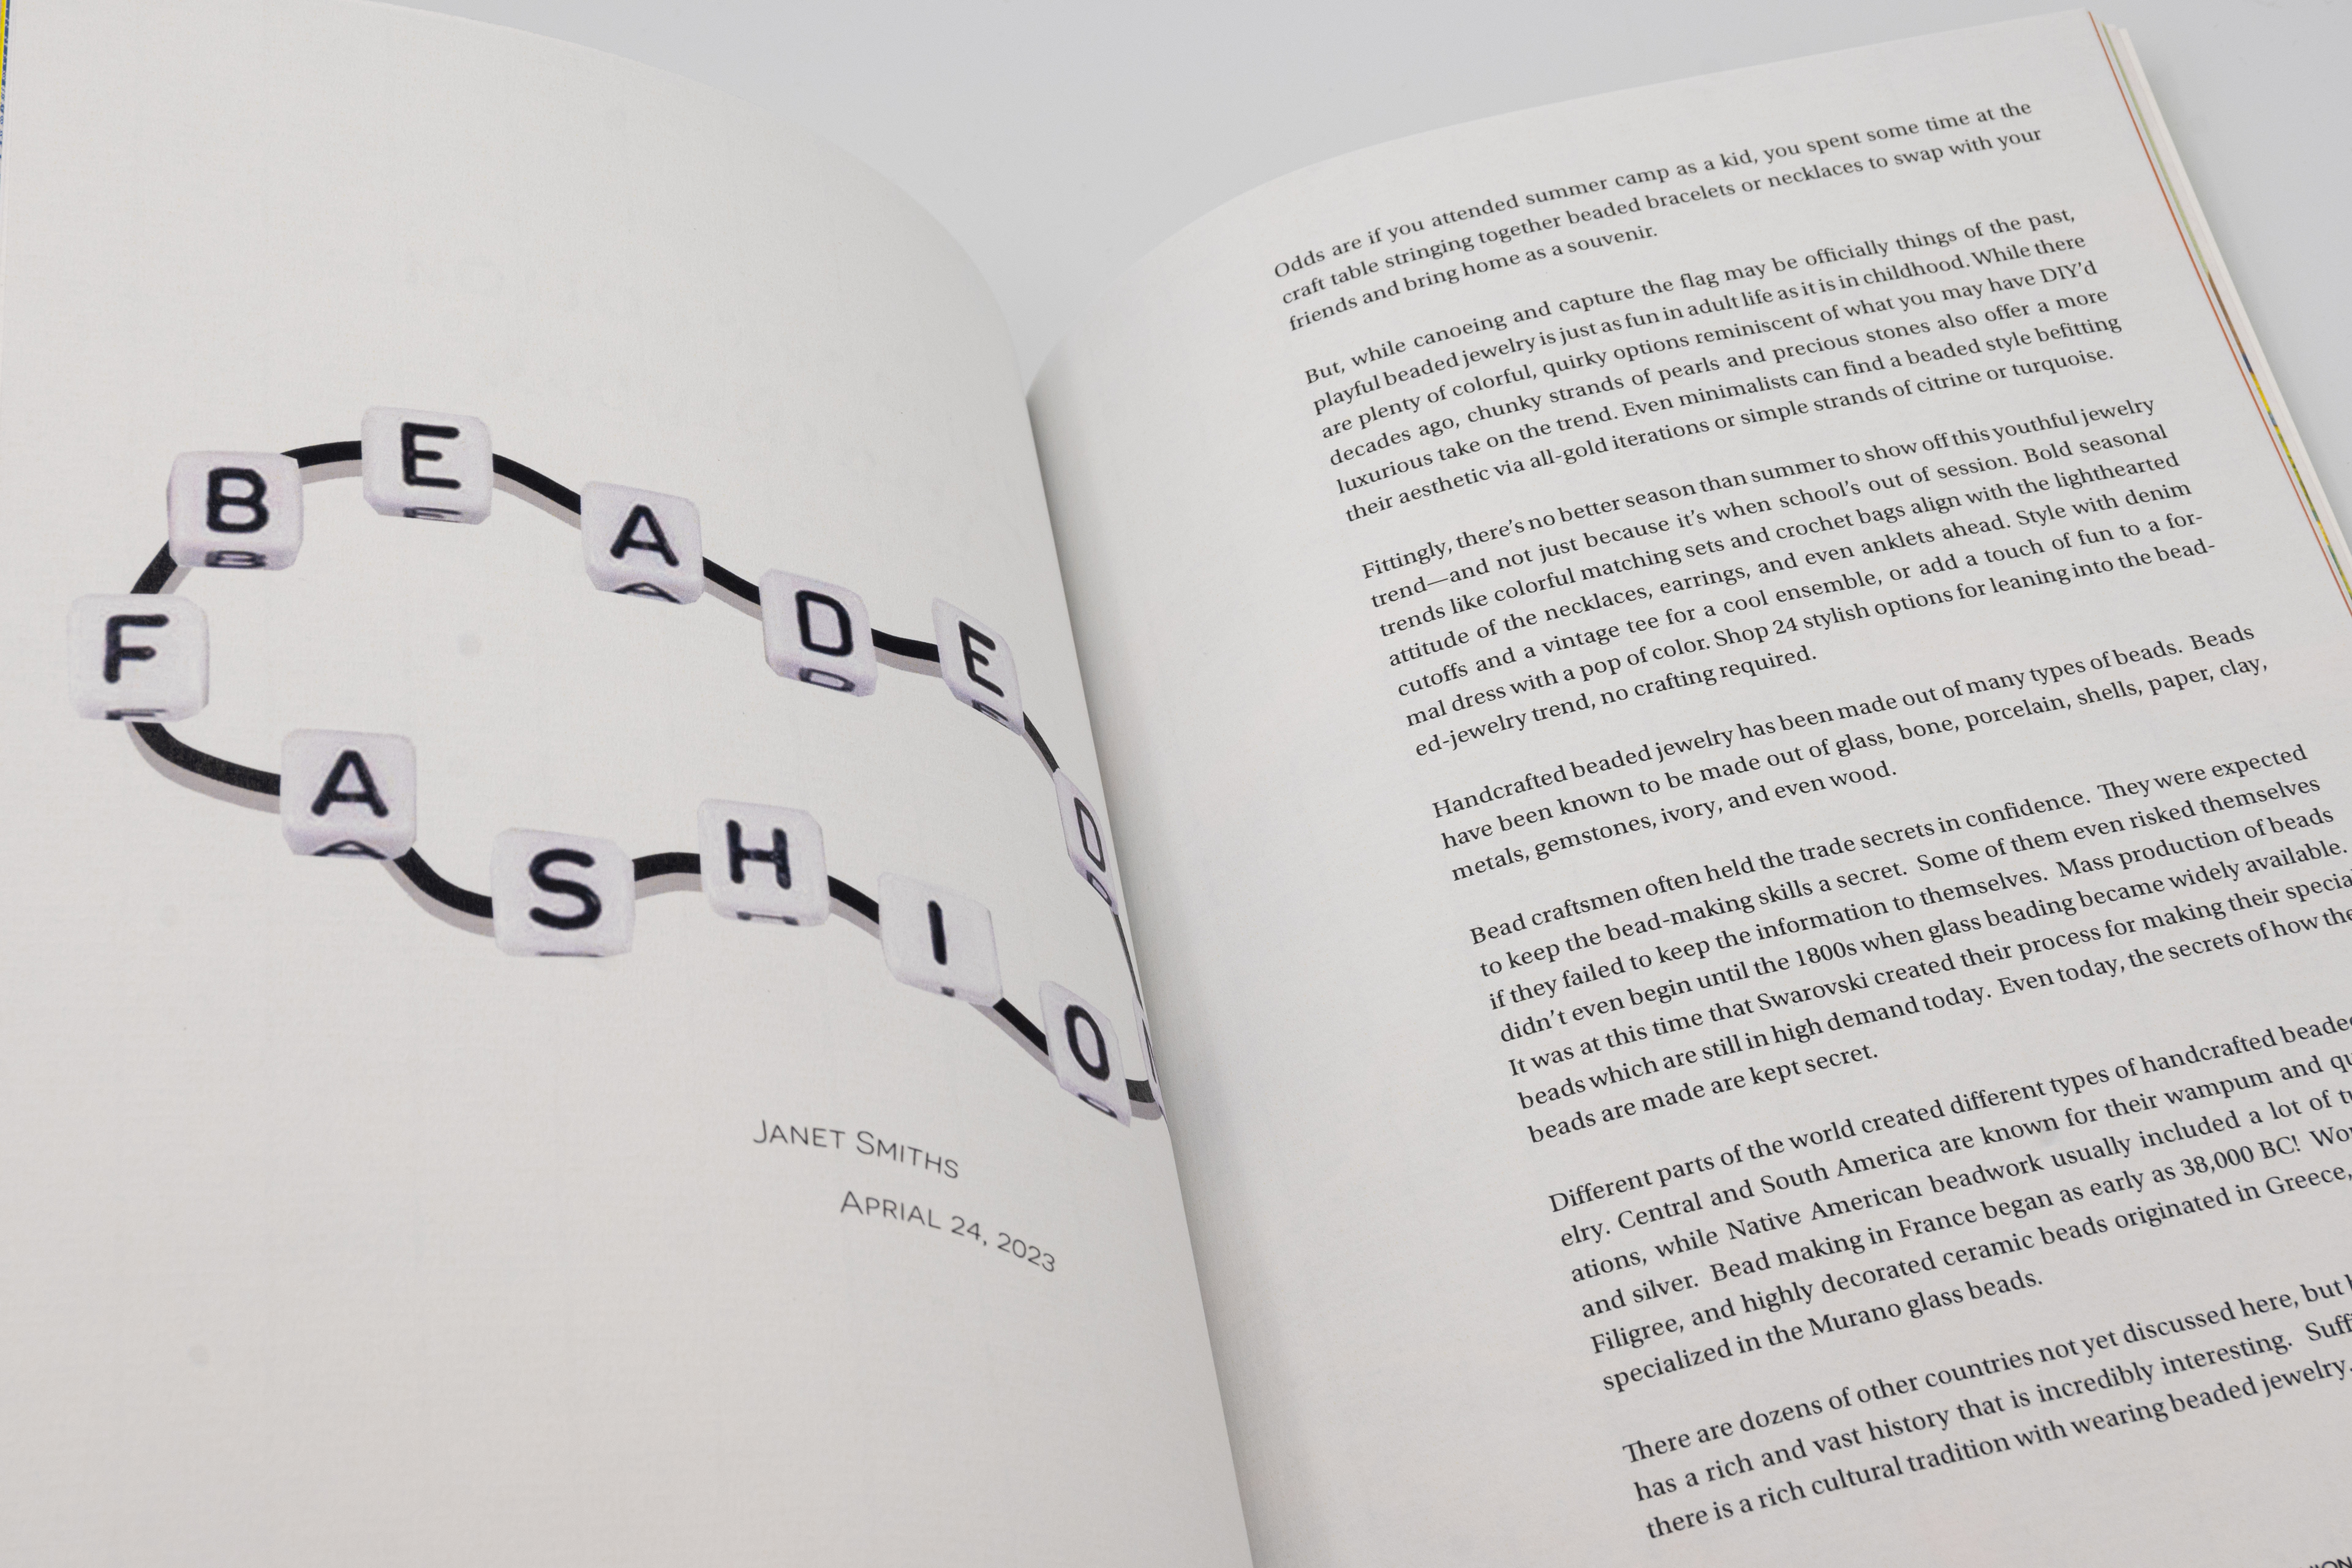 BEADED
FASHIO
JANET SMITHS
APRIAL 24, 2023
Odds are if you attended summer camp as a kid, you spent some time at the
craft table stringing together beaded bracelets or necklaces to swap with your
friends and bring home as a souvenir.
But, while canoeing and capture the flag may be officially things of the past,
playful beaded jewelry is just as fun in adult life as it is in childhood. While there
are plenty of colorful, quirky options reminiscent of what you may have DIY’d
decades ago, chunky strands of pearls and precious stones also offer a more
luxurious take on the trend. Even minimalists can find a beaded style befitting
their aesthetic via all-gold iterations or simple strands of citrine or turquoise.
Fittingly, there’s no better season than summer to show off this youthful jewelry
trend—and not just because it’s when school’s out of session. Bold seasonal
trends like colorful matching sets and crochet bags align with the lighthearted
attitude of the necklaces, earrings, and even anklets ahead. Style with denim
cutoffs and a vintage tee for a cool ensemble, or add a touch of fun to a for-
mal dress with a pop of color. Shop 24 stylish options for leaning into the bead-
ed-jewelry trend, no crafting required.
Handcrafted beaded jewelry has been made out of many types of beads. Beads
have been known to be made out of glass, bone, porcelain, shells, paper, clay,
metals, gemstones, ivory, and even wood.
Bead craftsmen often held the trade secrets in confidence. They were expected
to keep the bead-making skills a secret. Some of them even risked themselves
if they failed to keep the information to themselves. Mass production of beads
didn’t even begin until the 1800s when glass beading became widely available.
It was at this time that Swarovski created their process for making their special
beads which are still in high demand today. Even today, the secrets of how the
beads are made are kept secret.
Different parts of the world created different types of handcrafted beaded
elry. Central and South America are known for their wampum and
ations, while Native American beadwork usually included a lot of
and silver. Bead making in France began as early as 38,000 BC!
Filigree, and highly decorated ceramic beads originated in Greece,
specialized in the Murano glass beads.
There are dozens of other countries not yet discussed here, but
has a rich and vast history that is incredibly interesting.
there is a rich cultural tradition with wearing beaded jewelry.